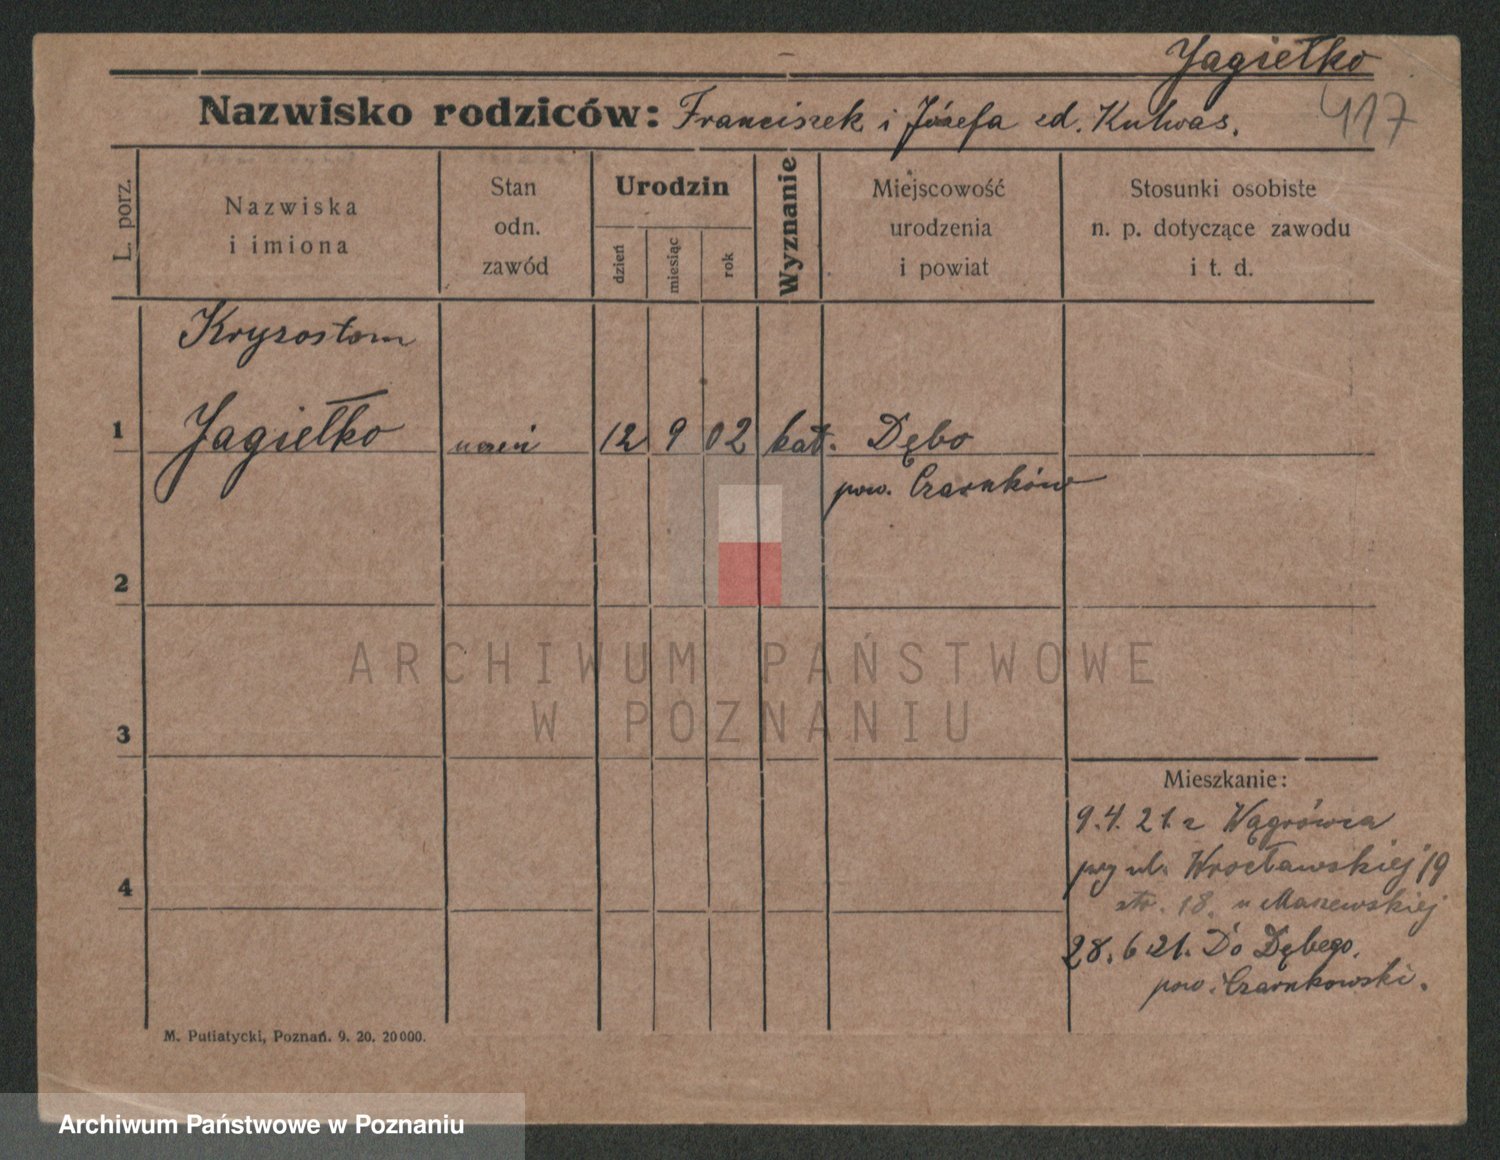 Jagiełko
Nazwisko rodziców: Franciszek i Józefa zd. Kulwas.
417
L. porz.
Nazwiska
i imiona
Stan
odn.
zawód
Urodzin
dzień
miesiąc
rok
Wyznanie
Miejscowość
urodzenia
i powiat
Stosunki osobiste
n. p. dotyczące zawodu
i t. d.
Kryzostom
1 Jagiełko uczeń 12 9 02 kat. Dębo
pow. Czarnków
2
3
4
Mieszkanie:
9.4.21. z Wągrówca
przy ul. Wrocławskiej 19
str. 18. u Maszewskiej
28.6 21. Do Dębego.
pow. Czarnkowski.
M. Putiatycki, Poznań. 9. 20. 20000.
ARCHIWUM PAŃSTWOWE
W POZNANIU
Archiwum Państwowe w Poznaniu